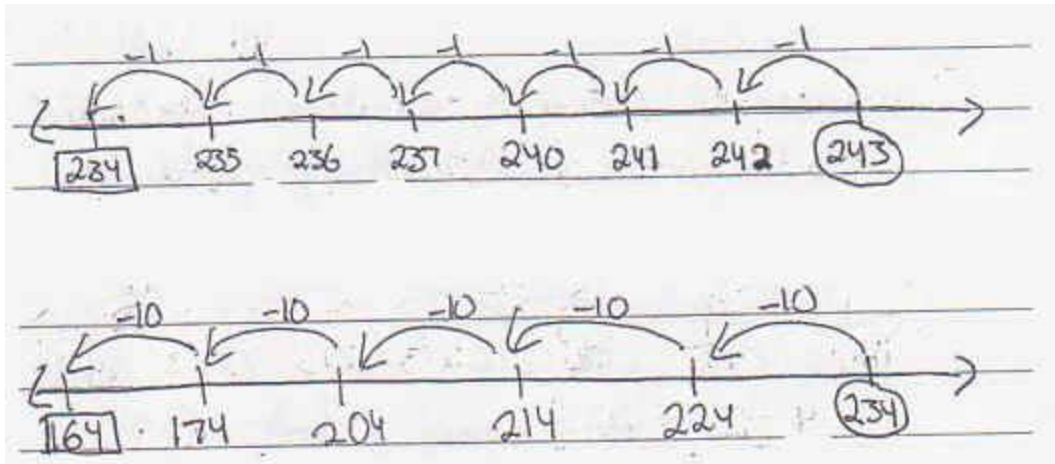 -1 -1 -1 -1 -1 -1 -1
234 235 236 237 240 241 242 243
-10 -10 -10 -10 -10
164 174 204 214 224 234